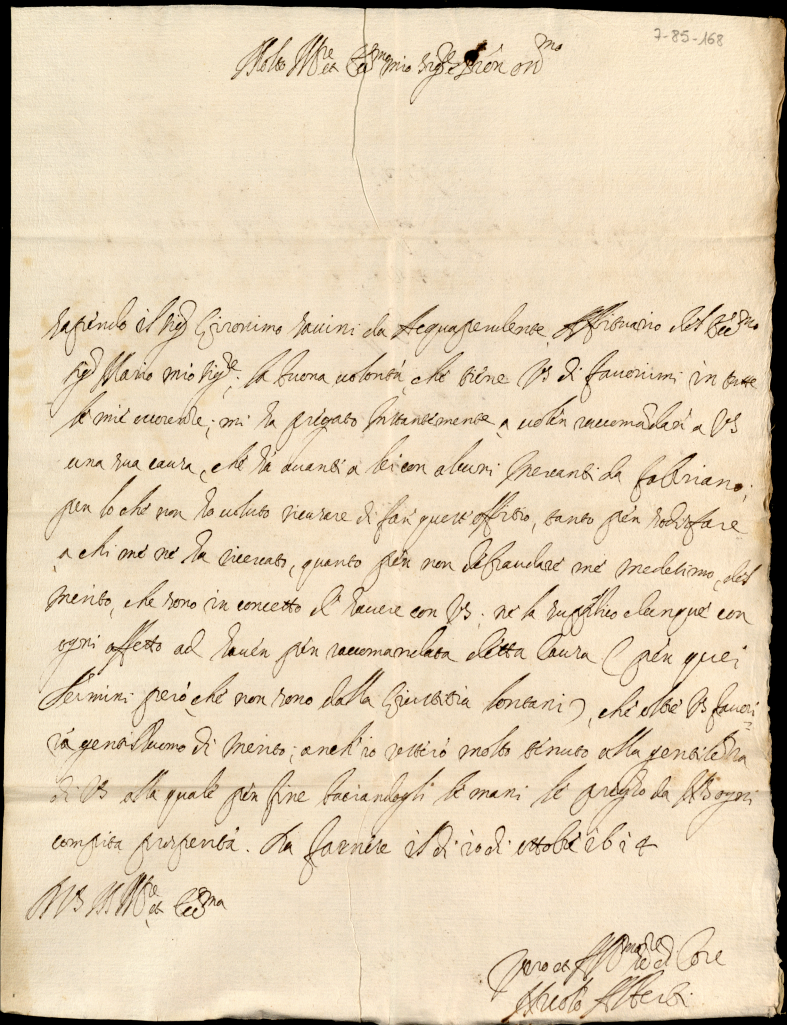 7-85-168
Molto Ill^re et Ecc^mo mio Sig^re e Pròn oss^mo
Sapendo il Sig^r Gironimo Savini da Acquapendente Affittuario dell'Ecc^mo
Sig^r Mario mio Sig^re; la buona volontà, che tiene VS di favorirmi in tutte
le mie occorenze; mi ha pregato instantemente a voler raccomandare a VS
una sua causa, che hà avanti a lei con alcuni Mercanti da Fabriano;
per lo che non ho voluto ricusare di far quest'offitio, tanto per sodisfare
a chi me ne ha ricercato, quanto per non defraudare me medesimo, del
merito, che sono in concetto d'havere con VS; ne la supplico dunque con
ogni affetto ad haver per raccomandata detta causa (per quei
termini però, che non sono dalla Giustitia lontani), che oltre VS favori-
rà gentilhuomo di merito; anch'io resterò molto tenuto alla gentilezza
di VS alla quale per fine baciandogli le mani le prego da ogni
compita prosperità. Da Farnese il dì 10 di ottobre 1614
Di VS M Ill^re et Ecc^ma
Ser^re di Core
Alberti